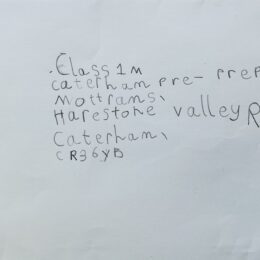 .Class 1M
caterham pre-prep
Mottrams,
Harestone valley R
Caterham,
CR36YB